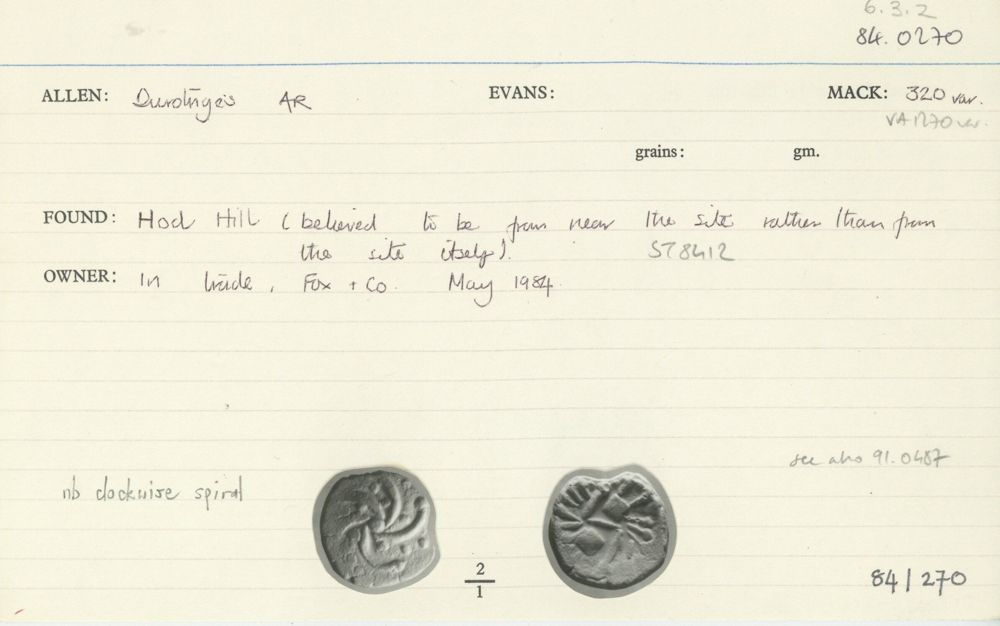 6.3.2
84.0270
ALLEN: Durotriges AR EVANS: MACK: 320 var.
VA 1270 var.
grains: gm.
FOUND: Hod Hill (believed to be from near the site rather than from
the site itself). ST8412
OWNER: In trade, Fox + Co. May 1984.
see also 91.0487
nb clockwise spiral
2
1
84/270